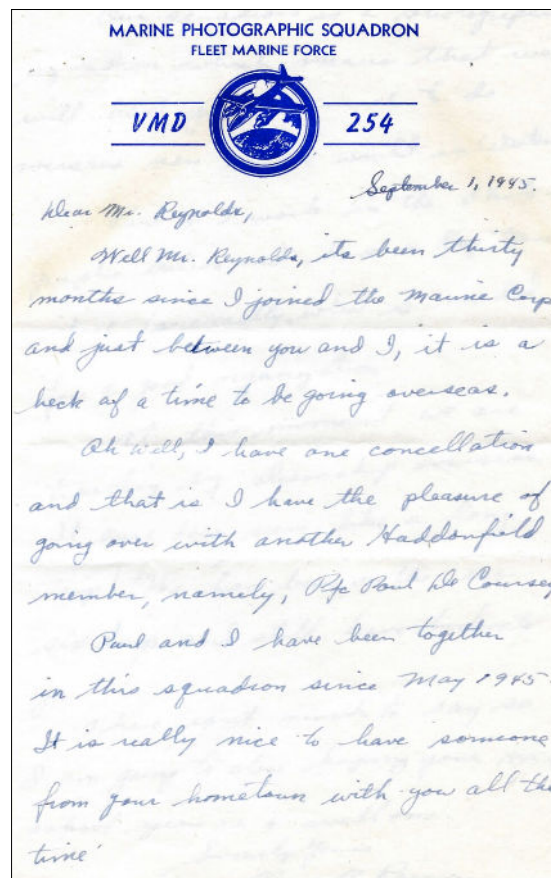 MARINE PHOTOGRAPHIC SQUADRON
FLEET MARINE FORCE
VMD 254
September 1, 1945.
Dear Mr. Reynolds,
Well Mr. Reynolds, its been thirty
months since I joined the Marine Corp
and just between you and I, it is a
heck of a time to be going overseas.
Oh well, I have one concellation
and that is I have the pleasure of
going over with another Haddonfield
member, namely, Pfc Paul De Coursey
Paul and I have been together
in this squadron since May 1945.
It is really nice to have someone
from your hometown with you all the
time.